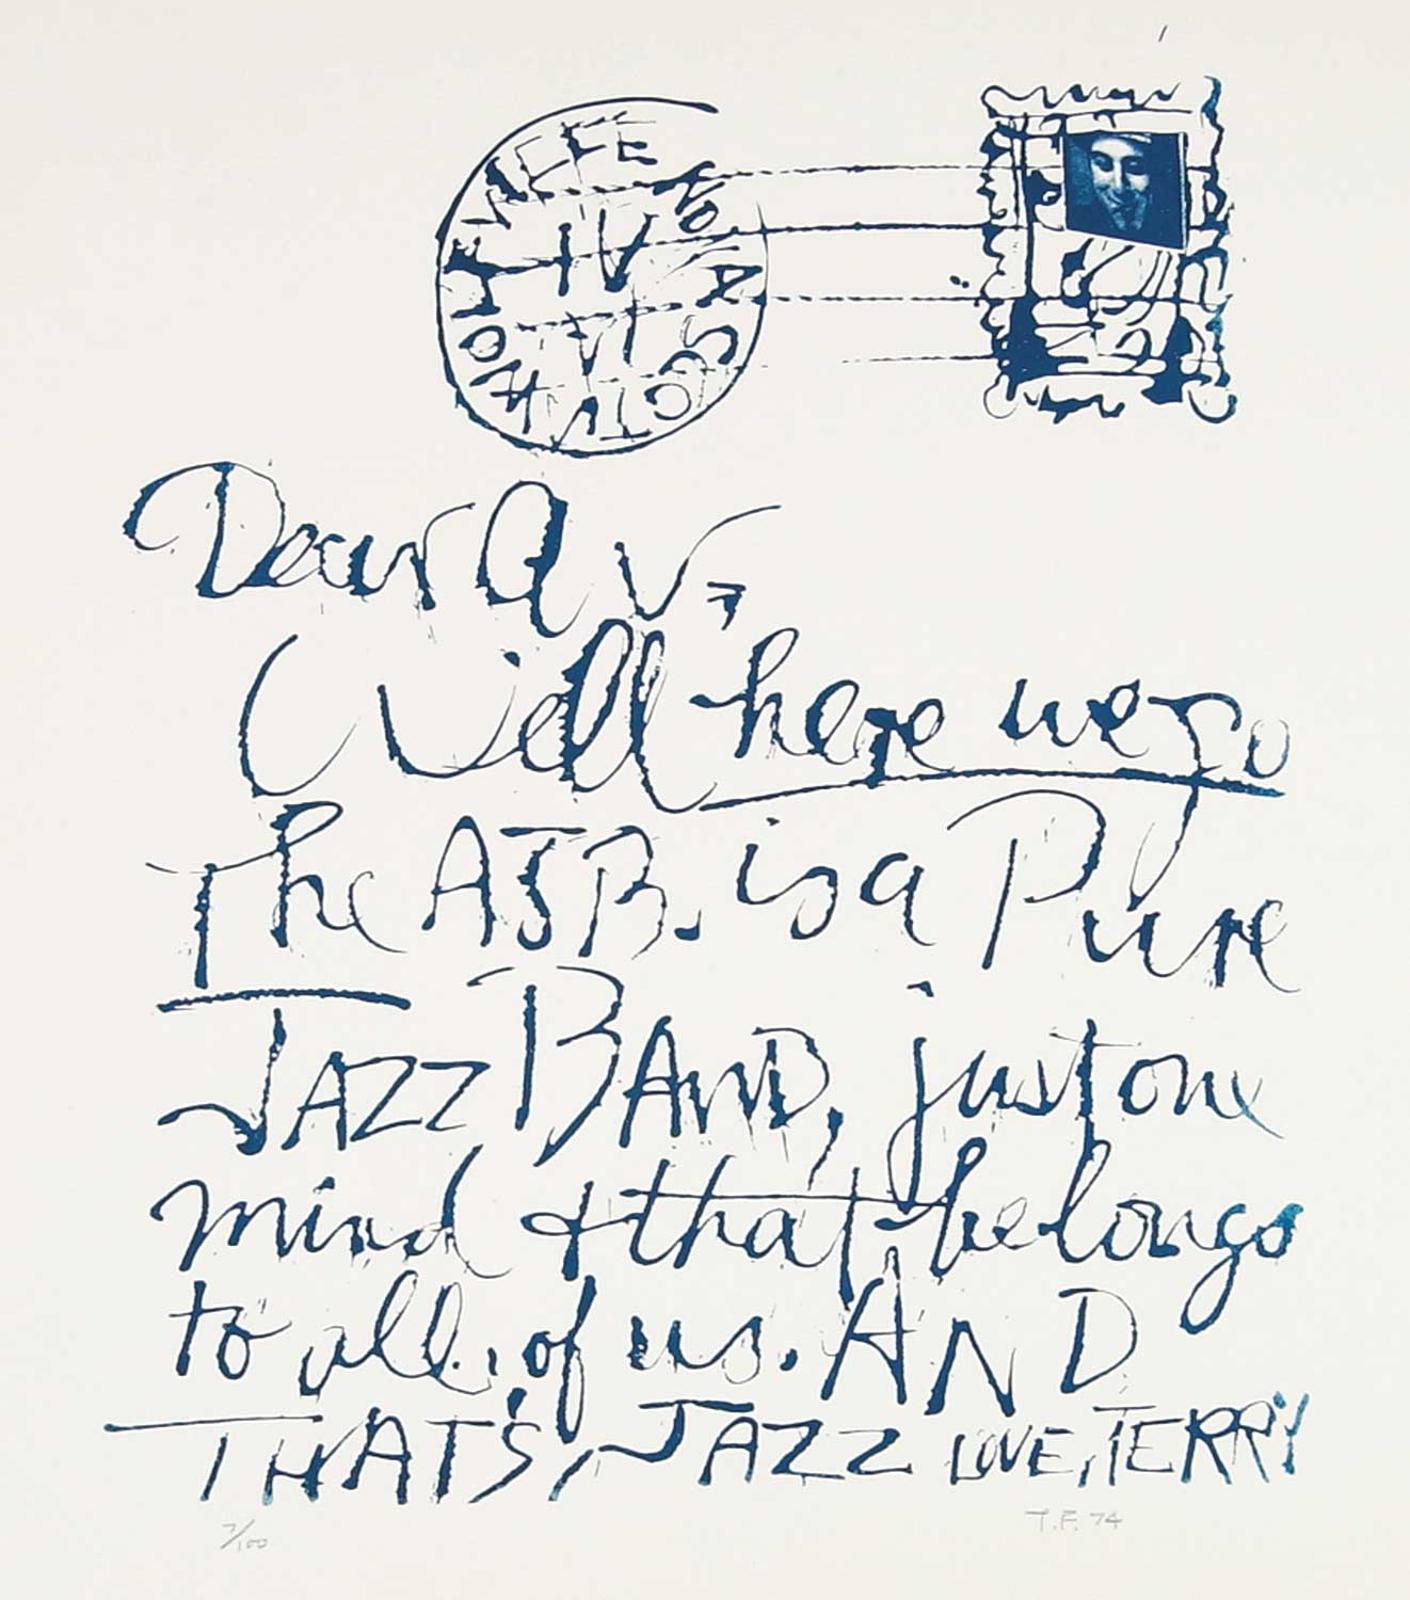 Dear A V,
Well here we go
The AJB. is a Pure
JAZZ BAND, just one
mind + that belongs
to all, of us. AND
THAT'S, JAZZ LOVE, TERRY
7/100 T.F. 74